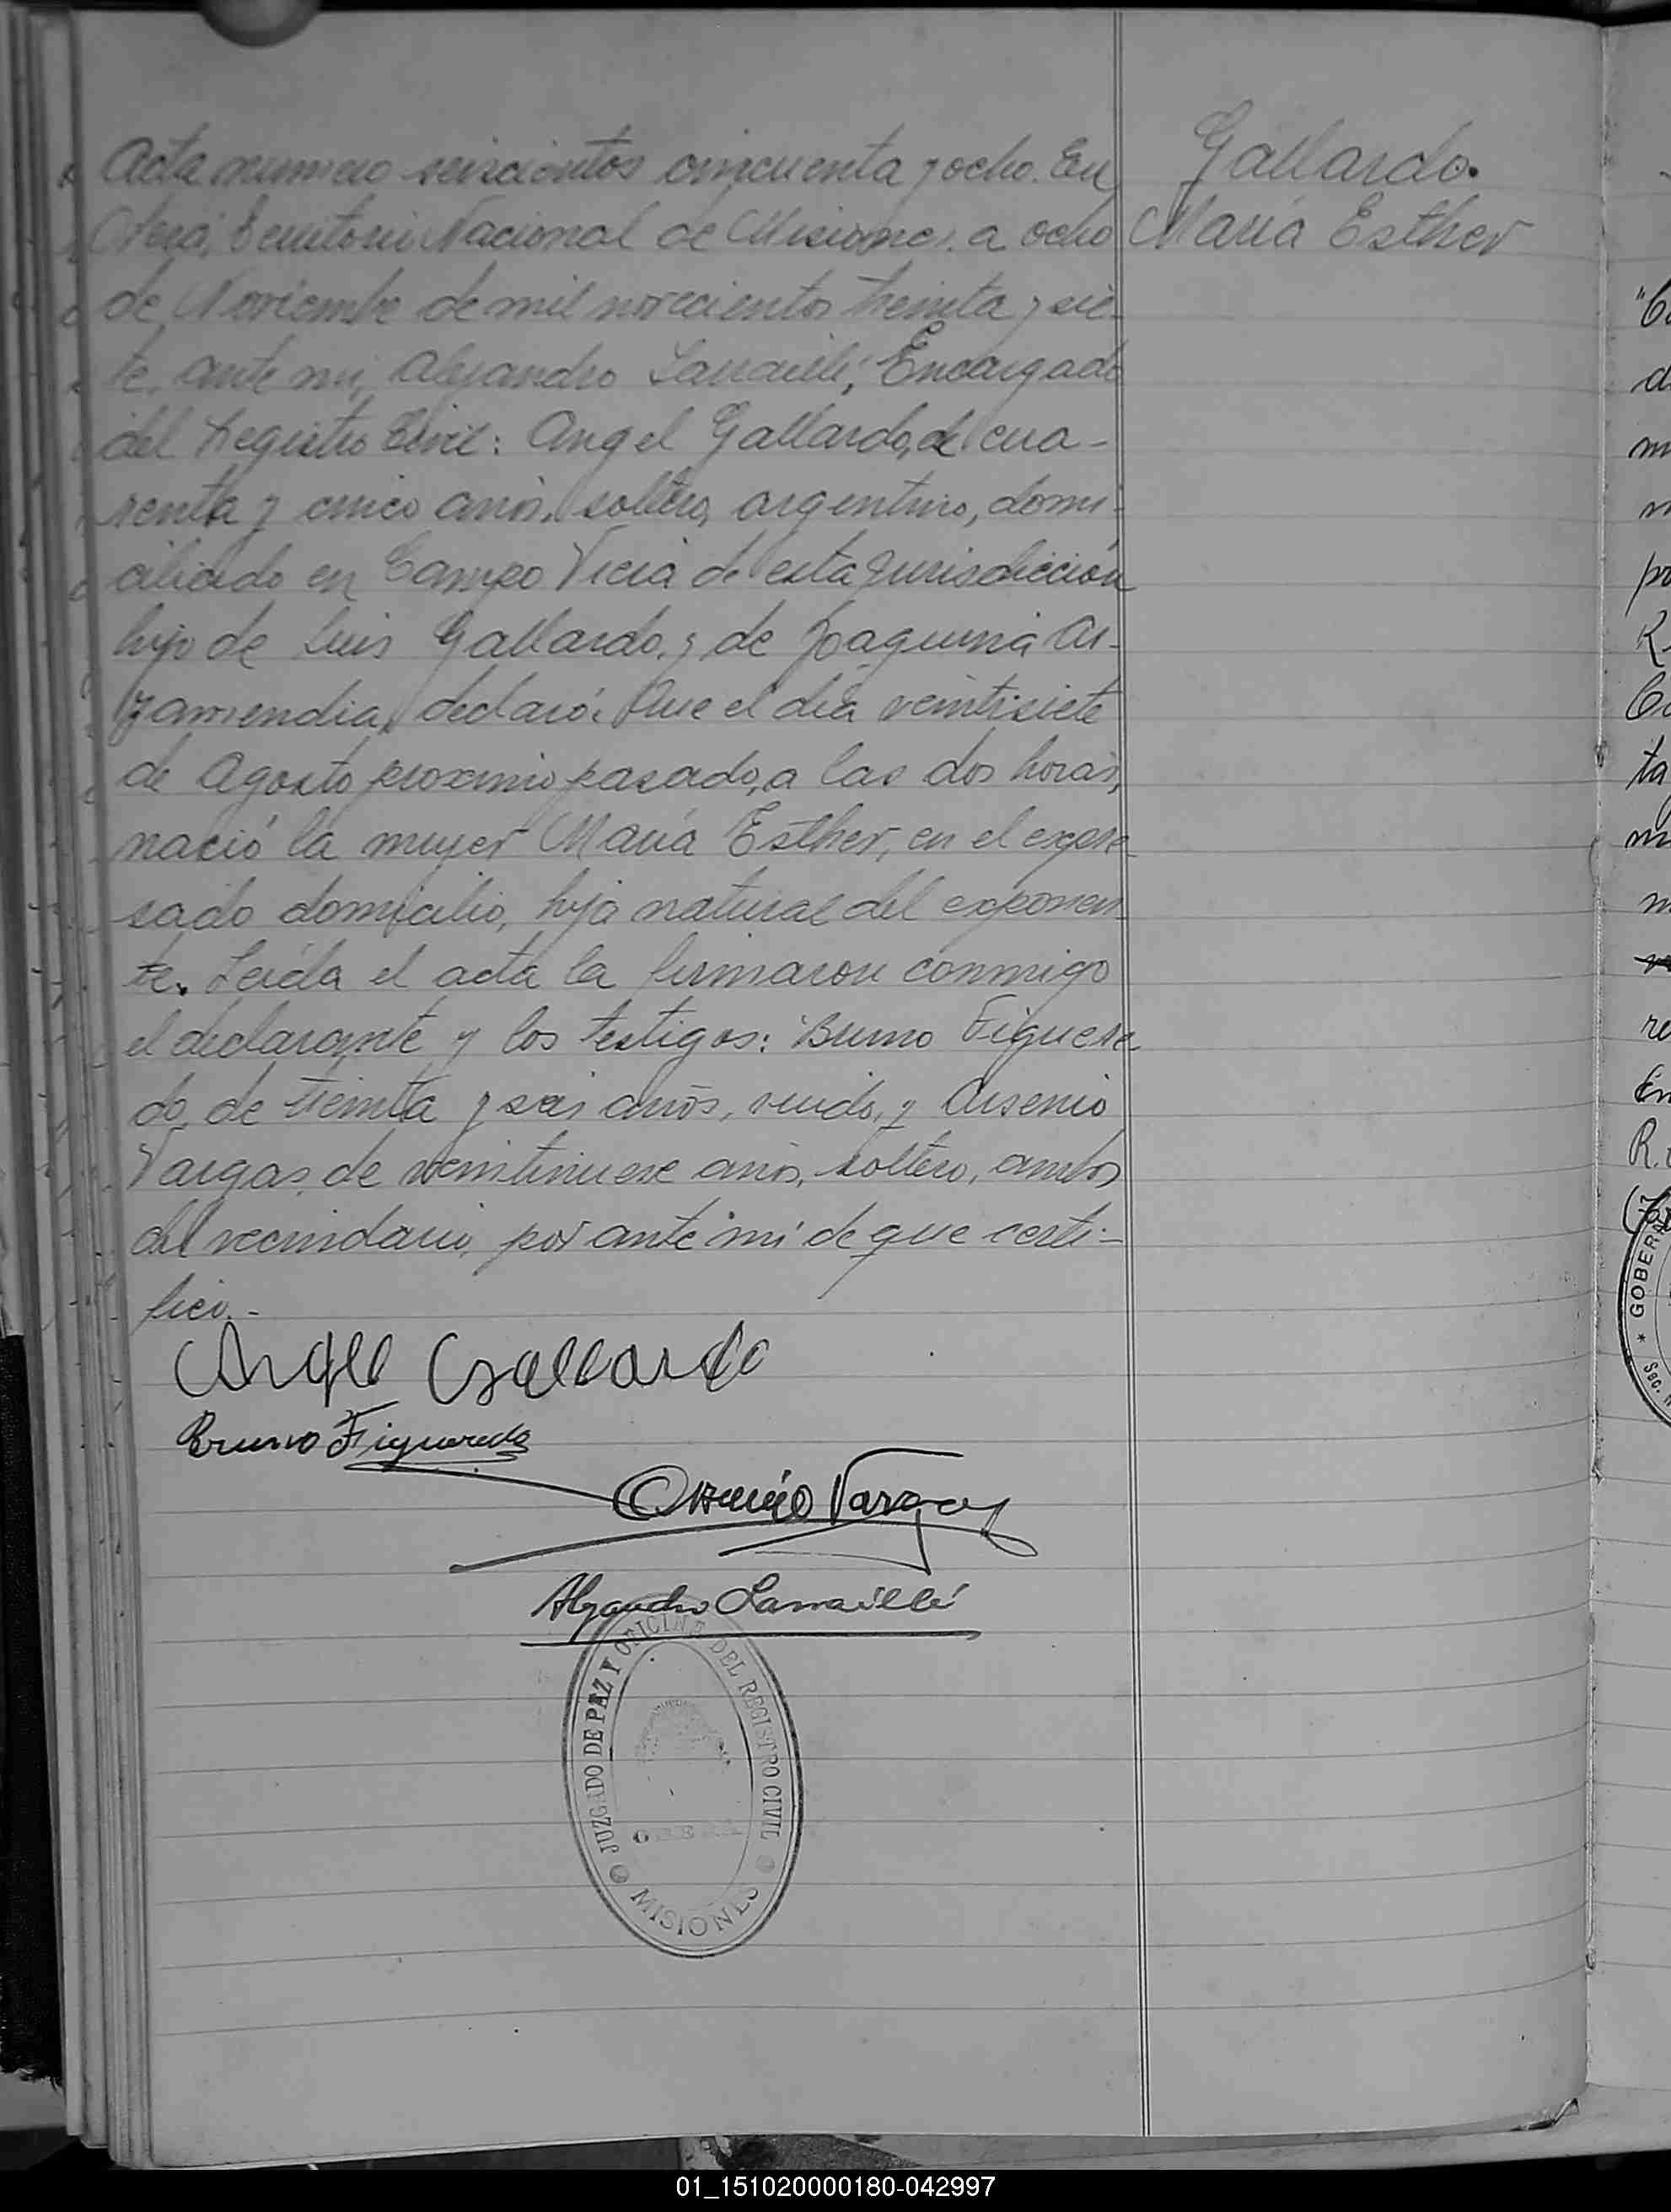 Acta numero seiscientos cincuenta y ocho. En
Oberá, Territorio Nacional de Misiones, a ocho
de Noviembre de mil novecientos treinta y sie-
te, ante mi, Alejandro Larraillé, Encargado
del Registro Civil: Angel Gallardo, de cua-
renta y cinco años, soltero, argentino, domi-
ciliado en Campo Viera de esta Jurisdicción
hijo de Luis Gallardo, y de Joaquina Ar-
zamendia, declaró: Que el día veintisiete
de Agosto proximo pasado, a las dos horas,
nació la mujer María Esther, en el expre-
sado domicilio, hija natural del exponen-
te. Leída el acta la firmaron conmigo
el declarante y los testigos: Bruno Figuere-
do, de treinta y seis años, viudo, y Arsenio
Vargas, de veintinueve años, soltero, ambos
del vecindario, por ante mí de que certi-
fico.-
Gallardo.
María Esther
Angel Gallardo
Bruno Figueredo
Arsenio Vargas
Alejandro Larraillé
JUZGADO DE PAZ Y OFICINA DEL REGISTRO CIVIL
MISIONES
GOBER
R.
ta
re
01_151020000180-042997